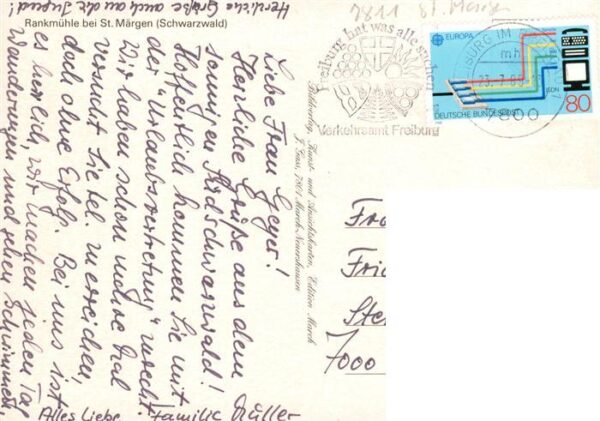 Herzliche Grüße auch an die Jugend!
Rankmühle bei St. Märgen (Schwarzwald)
Liebe Frau Geyer!
Herzliche Grüße aus dem
sonnigen Südschwarzwald!
Hoffentlich kommen Sie mit
der "Urlaubsvertretung" zurecht.
Wir haben schon mehre Mal
versucht Sie tel. zu erreichen,
doch ohne Erfolg. Bei uns ist
es herrlich, wir machen jeden Tag
Wanderungen und gehen schwimmen.
Alles Liebe Familie Müller
7811 St. Märgen
Freiburg hat was alle suchen
Verkehrsamt Freiburg
EUROPA
ISDN
DEUTSCHE BUNDESPOST
80
FREIBURG IM
23.7.88
7800
Kunst- und Ansichtskarten, Edition March
7801 March-Neuershausen
Fra
Frie
Ste
7000